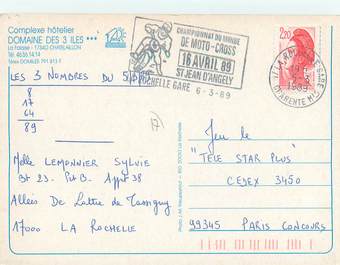 Complexe hôtelier
DOMAINE DES 3 ILES ***
La Falaise - 17340 CHATELAILLON
Tél. 46.56.14.14
CHAMPIONNAT DU MONDE
DE MOTO-CROSS
16 AVRIL 89
ST JEAN D'ANGELY
ROCHELLE GARE 6-3-89
2,20
LES 3 NOMBRES DU
8
17
64
89
Melle LEMONNIER SYLVIE
Bt 23 - Pt B - Appt 38
Allées De Lattre de Tassigny
17000 LA ROCHELLE
Jeu le
"TELE STAR PLUS"
CEDEX 3450
99345 PARIS CONCOURS